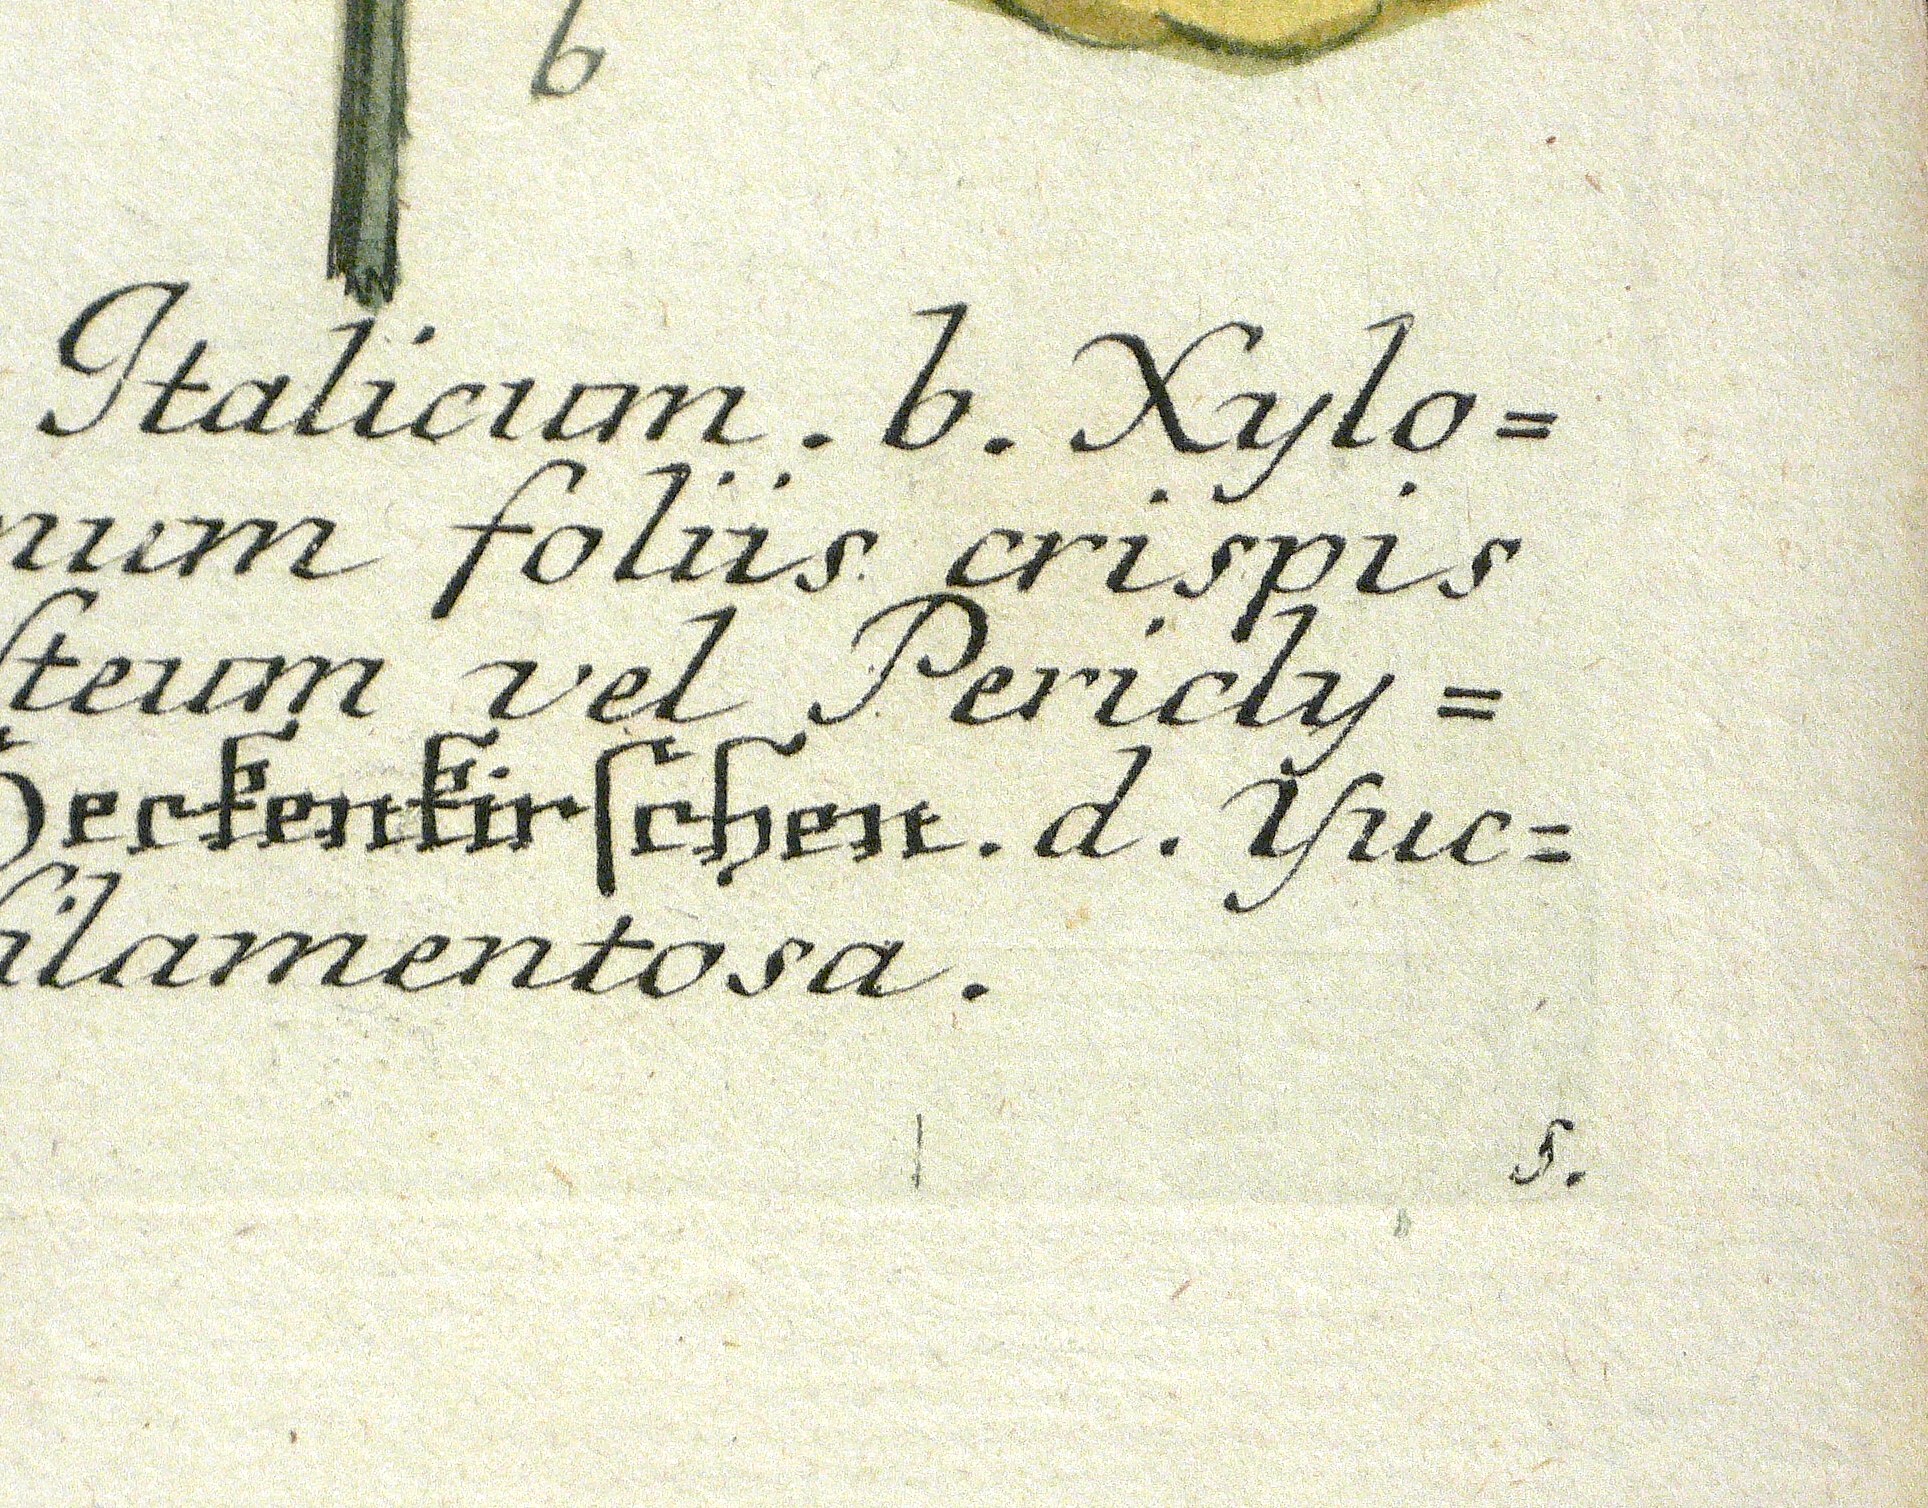 b
Italicum. b. Xylo=
num foliis crispis
ſteum vel Pericly=
Heckenkirſchen. d. Yuc=
filamentosa.
s.